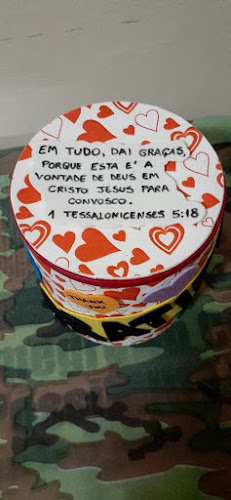 EM TUDO, DAI GRAÇAS,
PORQUE ESTA É A
VONTADE DE DEUS EM
CRISTO JESUS PARA
CONVOSCO.
1 TESSALONICENSES 5:18
THANK
YOU